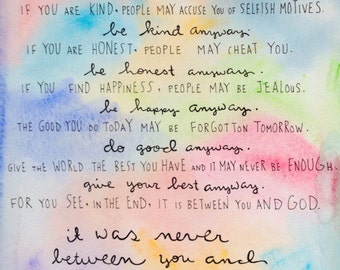 IF YOU ARE KIND, PEOPLE MAY ACCUSE YOU OF SELFISH MOTIVES.
be kind anyway.
IF YOU ARE HONEST, PEOPLE MAY CHEAT YOU.
be honest anyway.
IF YOU FIND HAPPINESS, PEOPLE MAY BE JEALOUS.
be happy anyway.
THE GOOD YOU DO TODAY MAY BE FORGOTTON TOMORROW.
do good anyway.
GIVE THE WORLD THE BEST YOU HAVE AND IT MAY NEVER BE ENOUGH.
give your best anyway.
FOR YOU SEE, IN THE END, IT IS BETWEEN YOU AND GOD.
it was never
between you and